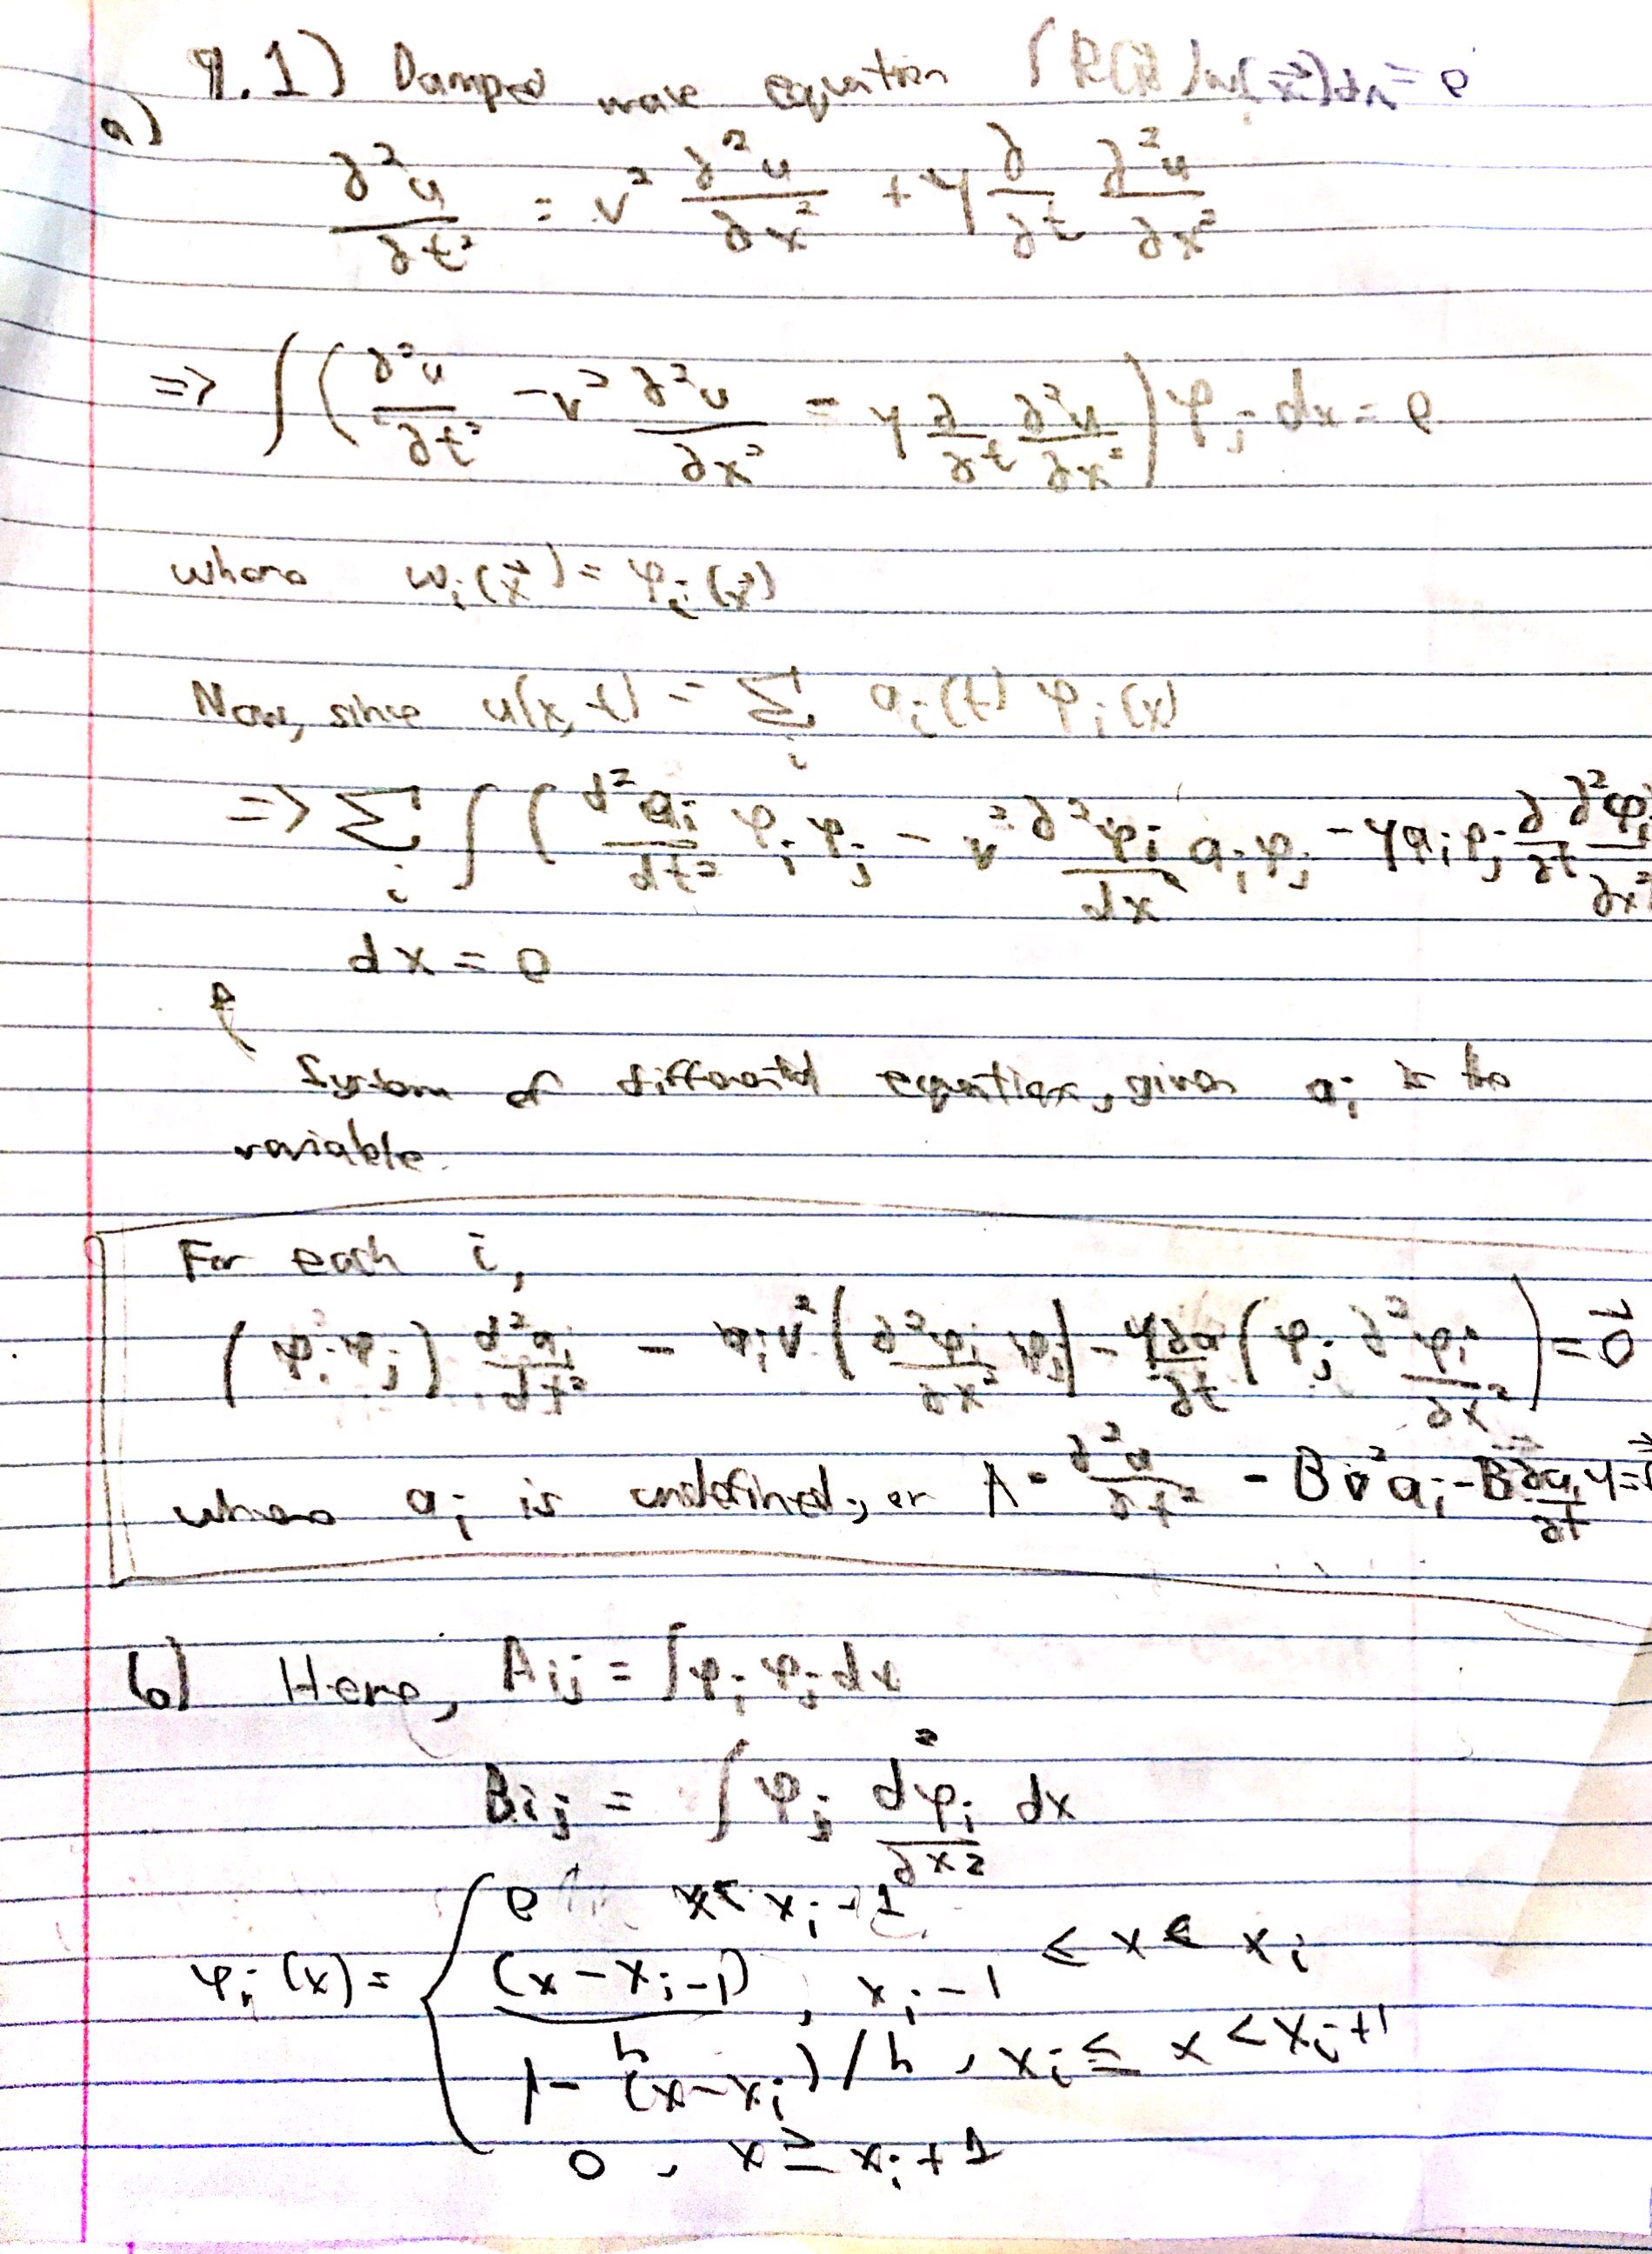 9.1) Damped wave equation ∫R(x⃗)wᵢ(x⃗)dx = 0
a)
∂²u/∂t² = v² ∂²u/∂x² + γ ∂/∂t ∂²u/∂x²
=> ∫(∂²u/∂t² - v² ∂²u/∂x² = γ ∂/∂t ∂²u/∂x²) φⱼ dx = 0
where wᵢ(x⃗) = φᵢ(x⃗)
Now, since u(x,t) = Σᵢ aᵢ(t) φᵢ(x)
=> Σᵢ ∫(d²aᵢ/dt² φᵢ φⱼ - v² ∂²φᵢ/dx² aᵢ φⱼ - γ aᵢ φⱼ ∂/∂t ∂²φᵢ/∂x²
dx = 0
System of differential equations, given aᵢ is the
variable.
For each i,
(φᵢ φⱼ) d²aᵢ/dt² - aᵢ v² (∂²φᵢ/∂x² φⱼ) - γ ∂a/∂t (φⱼ ∂²φᵢ/∂x²) = 0⃗
where aᵢ is undefined, or A · ∂²a/∂t² - B v² aᵢ - B ∂aᵢ/∂t γ =
b) Here, Aᵢⱼ = ∫φᵢ φⱼ dx
Bᵢⱼ = ∫ φⱼ d²φᵢ/∂x² dx
φᵢ(x) = { 0 x < xᵢ-1
(x - xᵢ-1)/h , xᵢ-1 ≤ x ≤ xᵢ
1 - (x - xᵢ)/h , xᵢ ≤ x < xᵢ+1
0 , x ≥ xᵢ+1